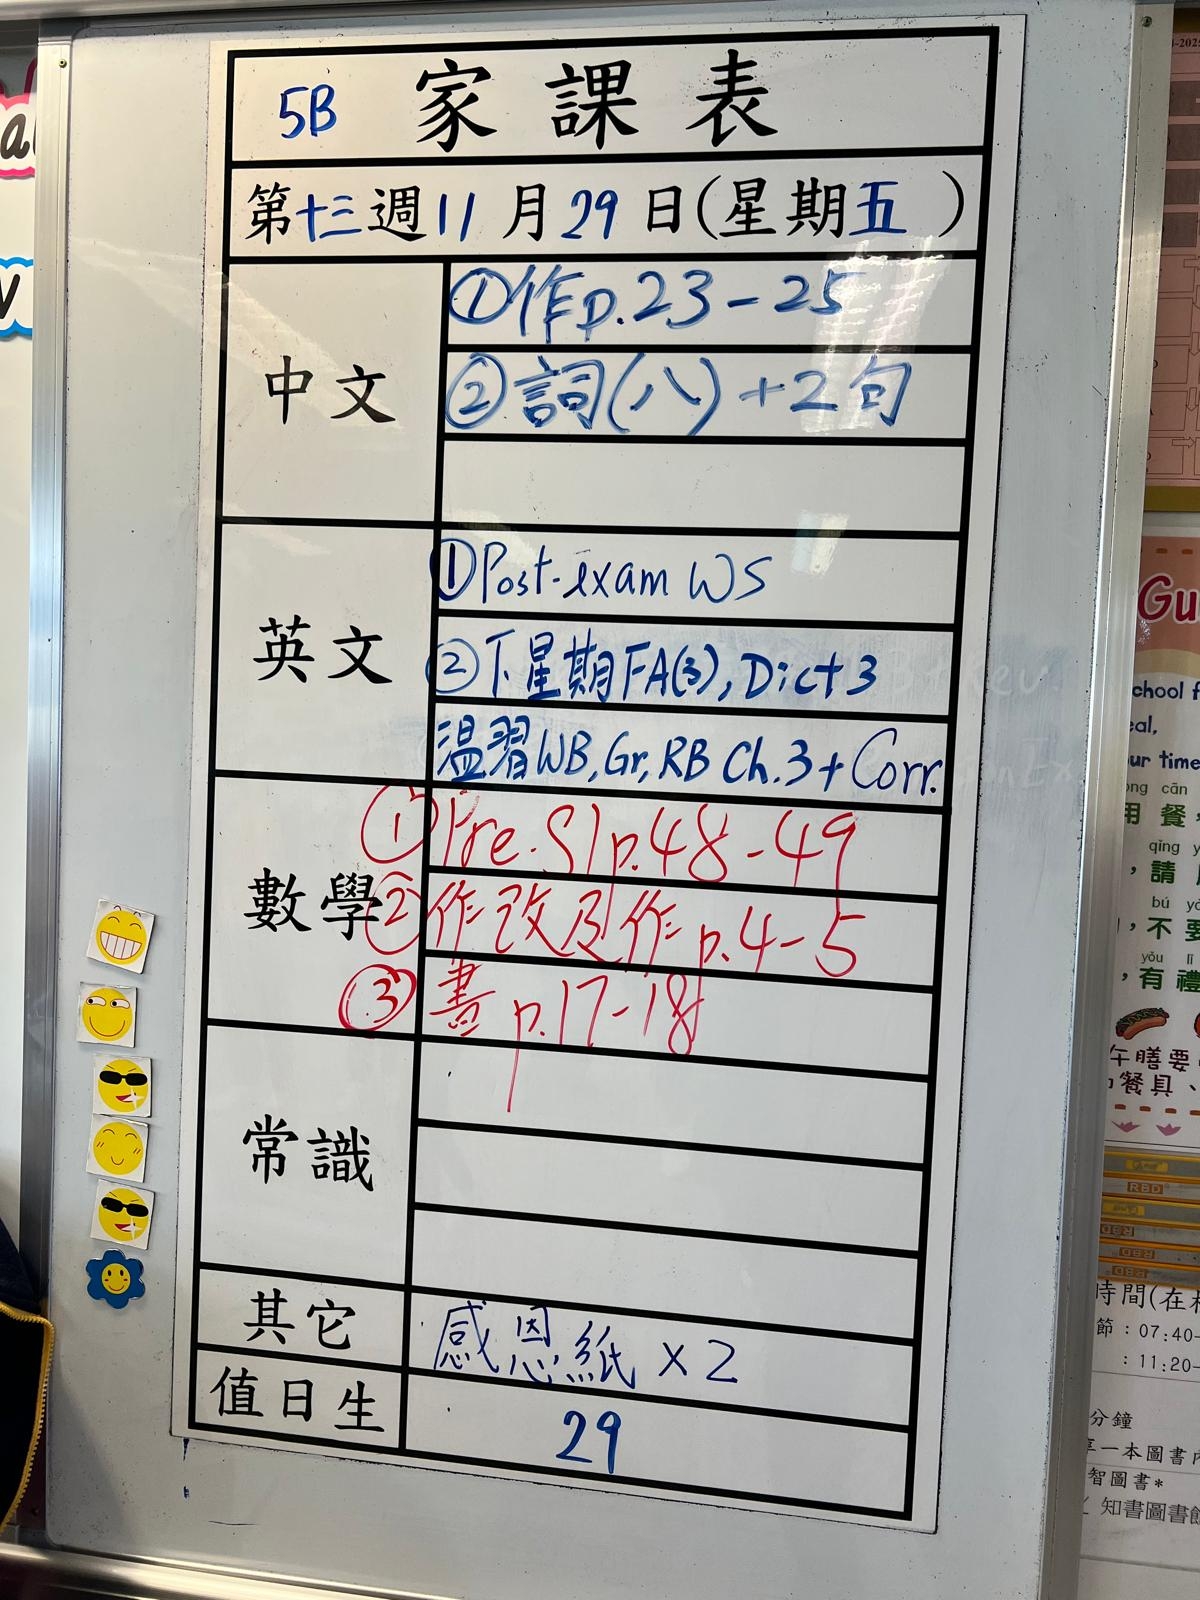 5B 家課表
第十三週 11月29日(星期五)
中文
①作p.23-25
②詞(八)+2句
英文
①Post-exam WS
②下星期FA(3), Dict 3
温習WB, Gr, RB Ch.3 + Corr.
數學
① Pre. S1 p.48-49
②作改及作p.4-5
③書 p.17-18
常識
其它
感恩紙 x2
值日生
29
Gu
chool f
eal,
ur time
ong cān
用餐,
qǐng y
,請
bú yà
,不要
yǒu lǐ
,有禮
午膳要
餐具、
RBD
時間(在
節:07:40-
:11:20-
分鐘
享一本圖書內
智圖書*
知書圖書館